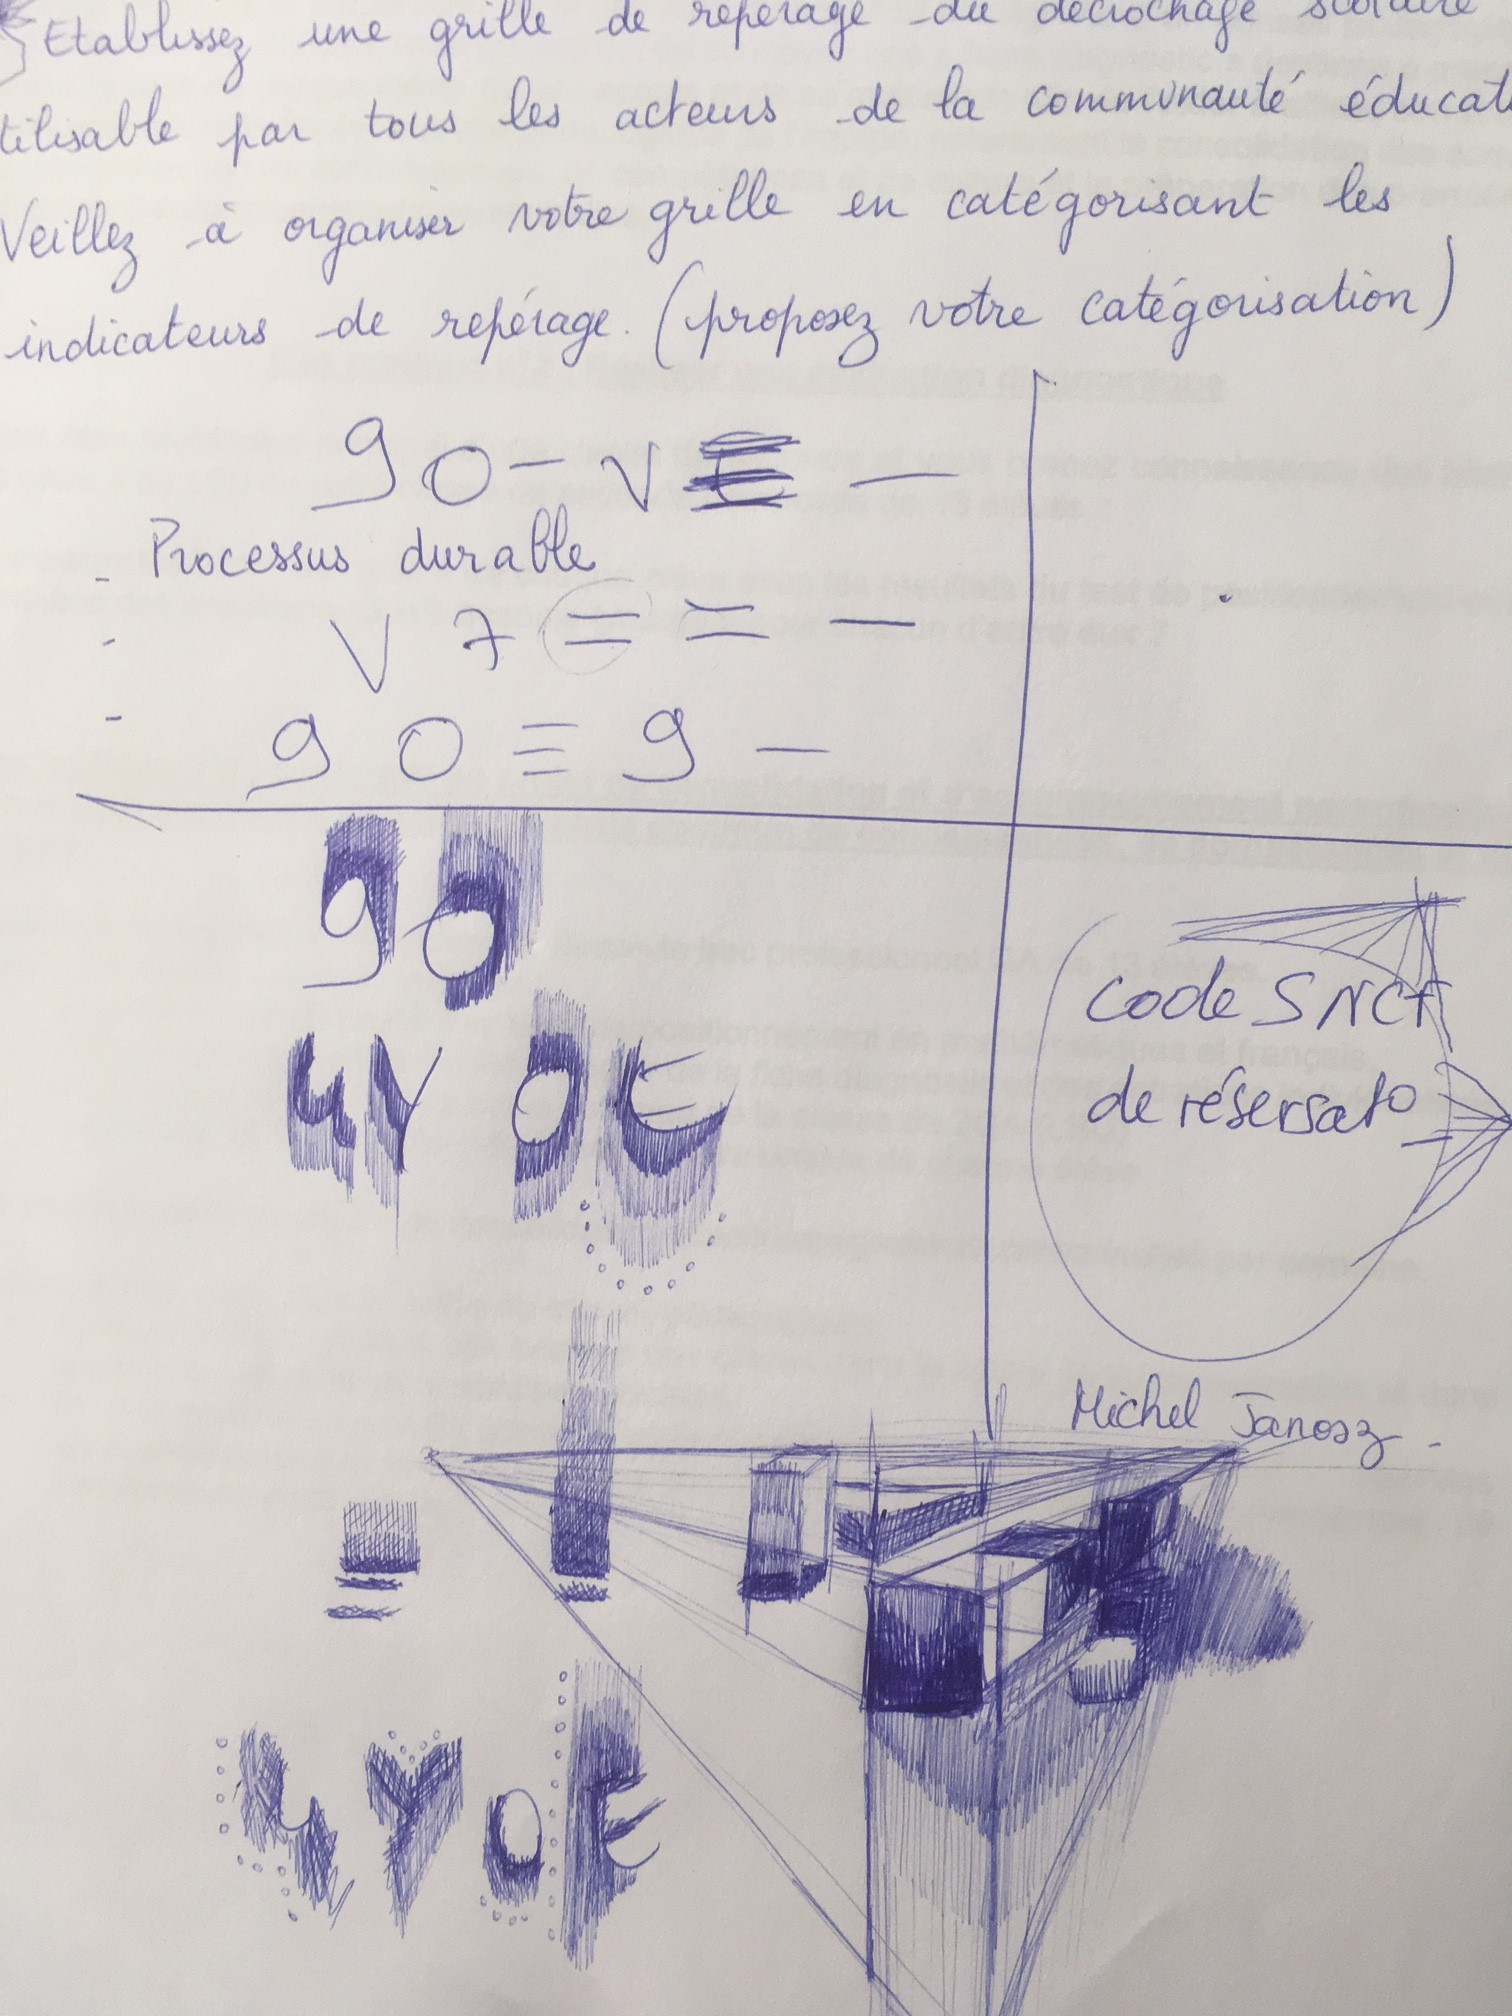 Etablissez une grille de repérage du décrochage scolaire
tilisable par tous les acteurs de la communauté éducat
Veillez à organiser votre grille en catégorisant les
indicateurs de repérage. (proposez votre catégorisation)
90-V —
- Processus durable
- V 7 = = —
- 90 ≡ 9 —
90
4Y OE
Code SNCF
de résersato
Michel Janosz.
4YOE